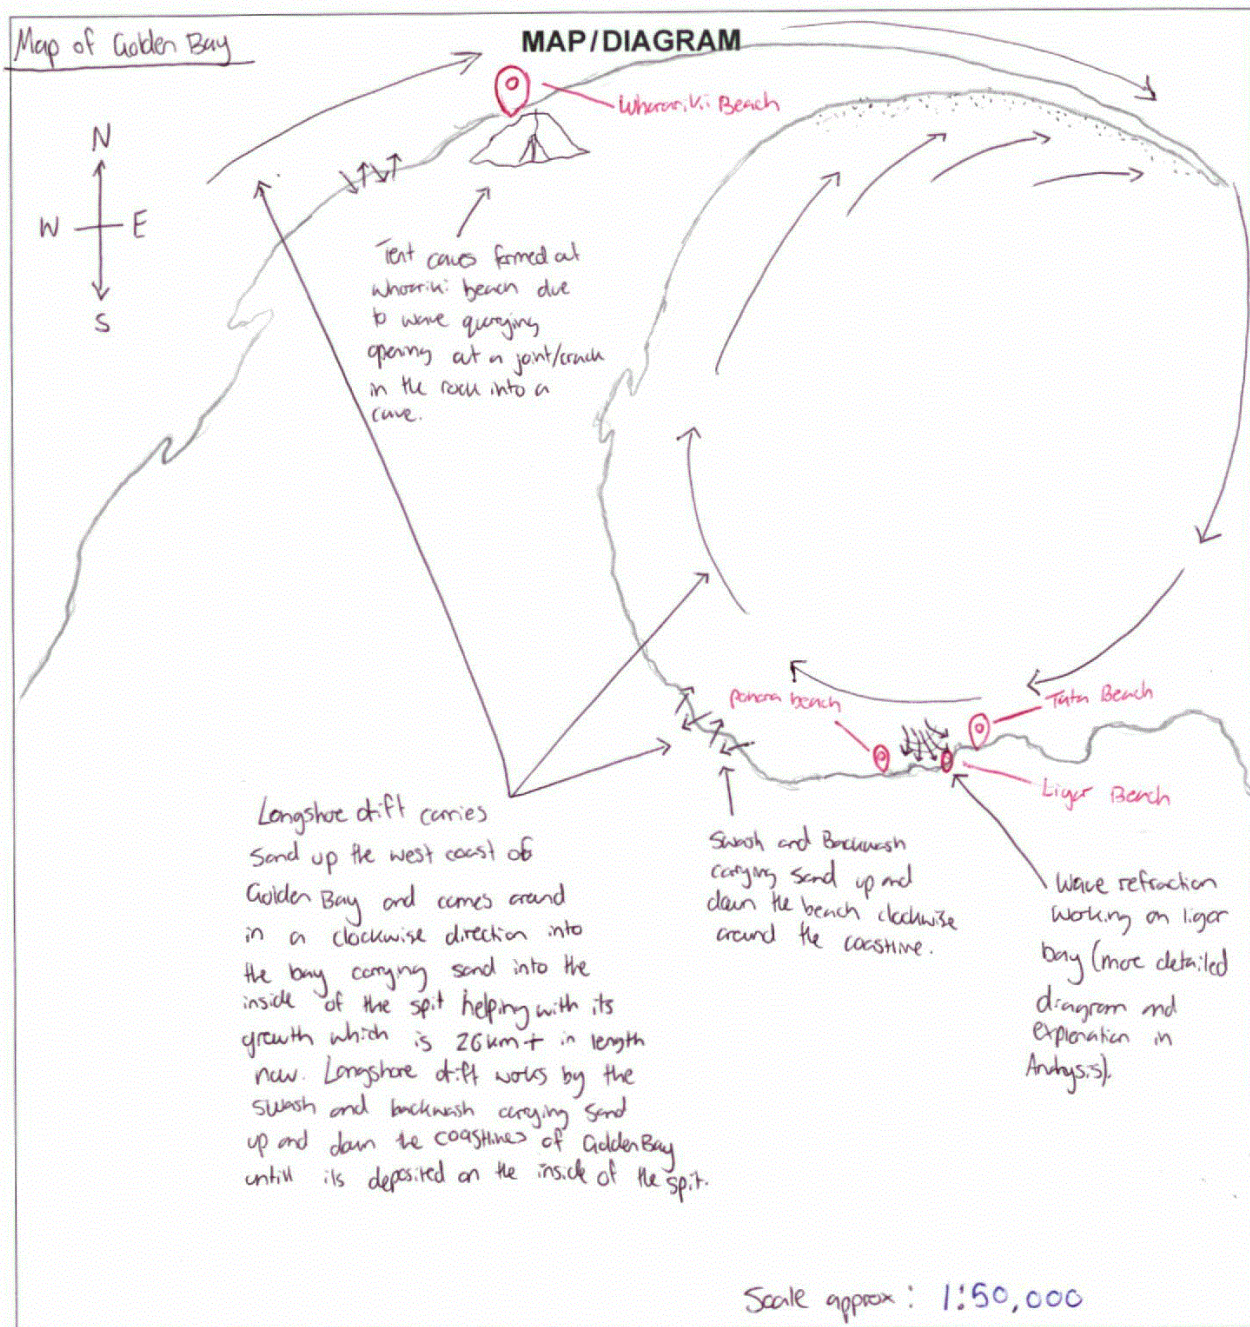 Map of Golden Bay
MAP/DIAGRAM
N
W E
S
Wharariki Beach
Tent caves formed at
whariki beach due
to wave quarying
opening at a joint/crack
in the rock into a
cave.
ponora beach
Tata Beach
Ligar Beach
Longshore drift carries
sand up the west coast of
Golden Bay and comes around
in a clockwise direction into
the bay carrying sand into the
inside of the spit helping with its
growth which is 26km+ in length
now. Longshore drift works by the
swash and backwash carying sand
up and down the coastlines of Golden Bay
untill its deposited on the inside of the spit.
Swash and Backwash
carying sand up and
down the beach clockwise
around the coastline.
Wave refraction
working on ligar
bay (more detailed
diagram and
explenation in
Analysis).
Scale approx: 1:50,000